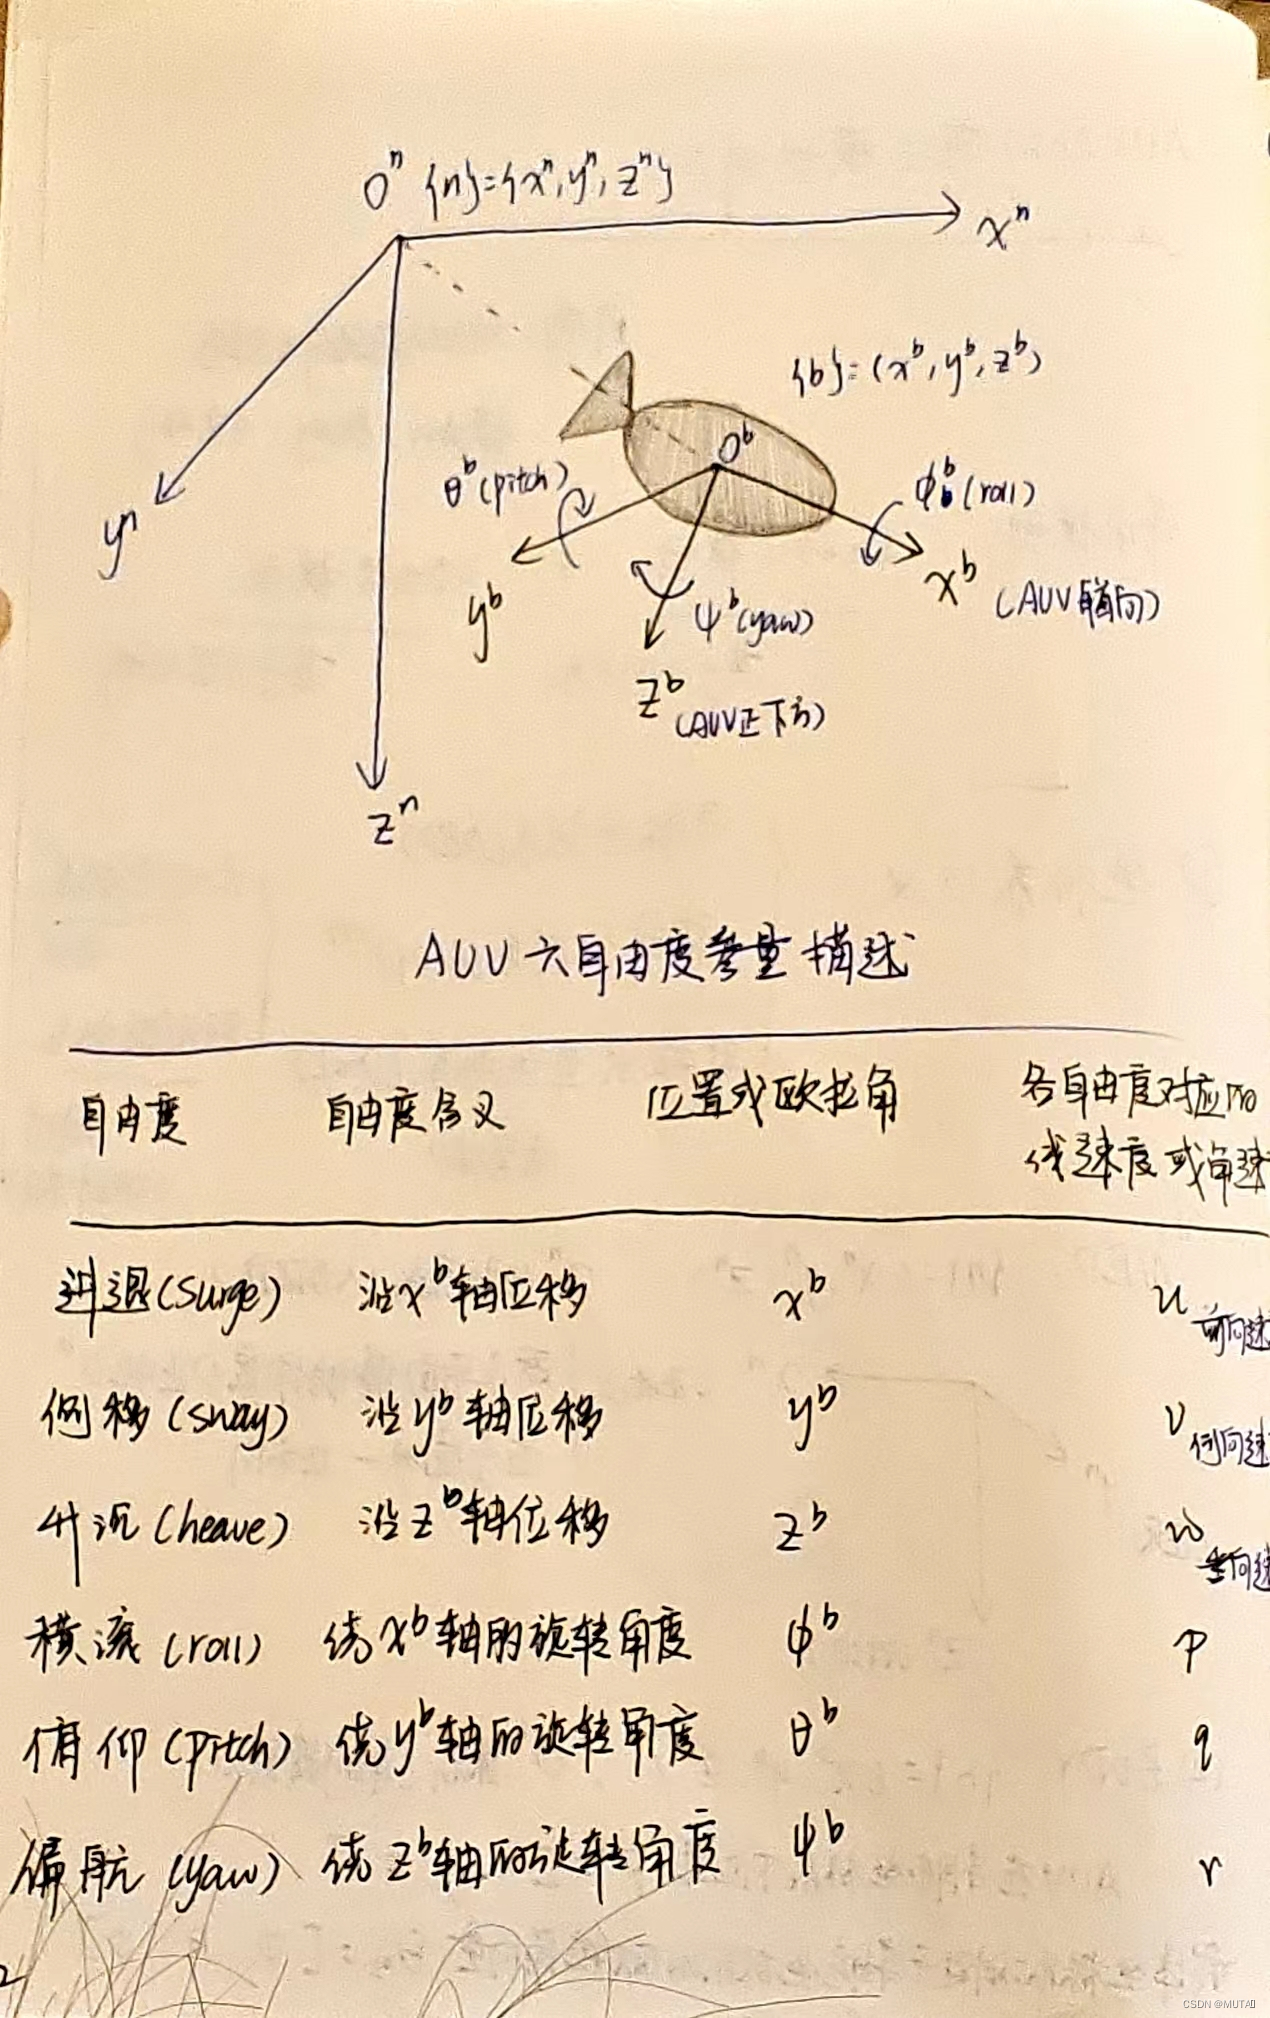 Oⁿ {n}={xⁿ, yⁿ, zⁿ}
xⁿ
{b}=(xᵇ, yᵇ, zᵇ)
Oᵇ
θᵇ(pitch)
ϕᵇ(roll)
yⁿ
xᵇ (AUV艏向)
yᵇ
ψᵇ(yaw)
zᵇ (AUV正下方)
zⁿ
AUV 六自由度参量描述
自由度 自由度含义 位置或欧拉角 各自由度对应的
线速度或角速
进退(surge) 沿xᵇ轴位移 xᵇ u 前向速
侧移(sway) 沿yᵇ轴位移 yᵇ v 侧向速
升沉(heave) 沿zᵇ轴位移 zᵇ w 垂向速
横滚(roll) 绕xᵇ轴的旋转角度 ϕᵇ p
俯仰(pitch) 绕yᵇ轴的旋转角度 θᵇ q
偏航(yaw) 绕zᵇ轴的旋转角度 ψᵇ r
2
CSDN @MUTA